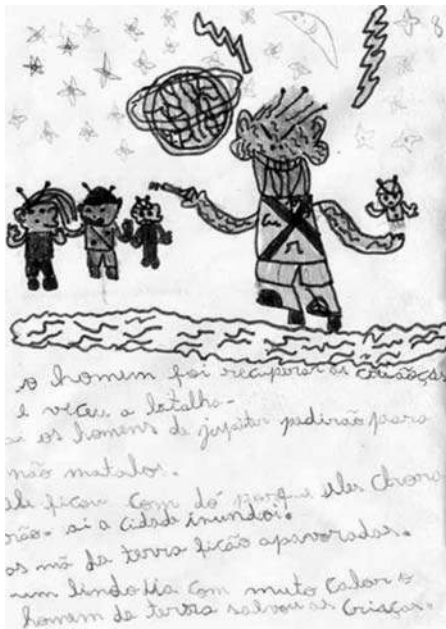 8
o homem foi recuperar as crianças
e veceu a batalha.
ai os homens de jupiter pedirão para
não matalos.
ele ficou com dó porque eles chora
rão. ai a cidade inundoi.
as mã da terra ficão apavoradas.
um lindo dia com muto calor o
homem da terra salvou as criaças.